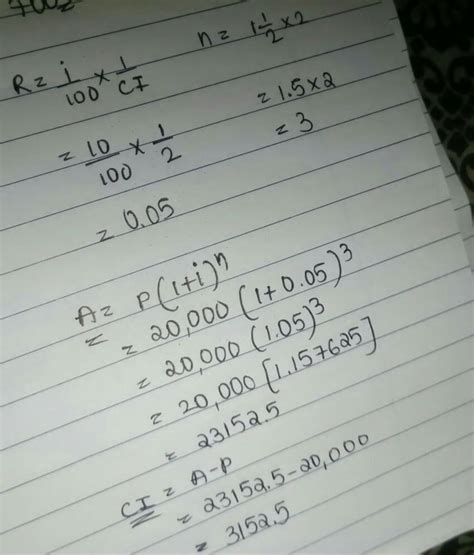 R = i/100 × 1/CI
n = 1 1/2 × 2
= 10/100 × 1/2
= 1.5 × 2
= 3
= 0.05
A = P(1+i)^n
= 20,000 (1+0.05)^3
= 20,000 (1.05)^3
= 20,000 [1.157625]
= 23152.5
CI = A-P
= 23152.5-20,000
= 3152.5